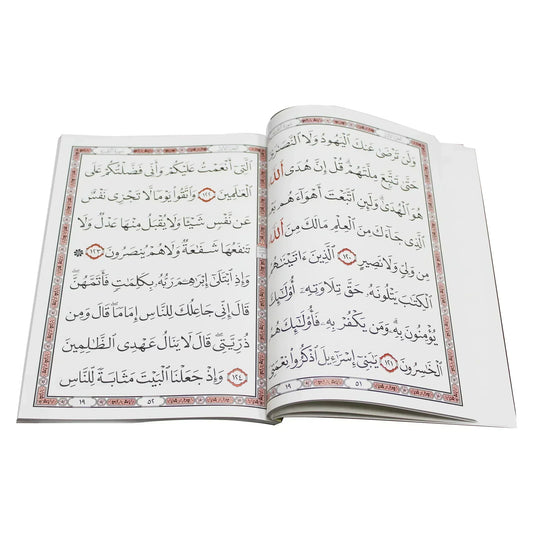 وَلَن تَرْضَىٰ عَنكَ ٱلْيَهُودُ وَلَا ٱلنَّصَٰرَىٰ
حَتَّىٰ تَتَّبِعَ مِلَّتَهُمْ ۗ قُلْ إِنَّ هُدَى ٱللَّهِ
هُوَ ٱلْهُدَىٰ ۗ وَلَئِنِ ٱتَّبَعْتَ أَهْوَآءَهُم
ٱلَّذِى جَآءَكَ مِنَ ٱلْعِلْمِ ۙ مَا لَكَ مِنَ ٱللَّهِ
مِن وَلِىٍّ وَلَا نَصِيرٍ ١٢٠ ٱلَّذِينَ ءَاتَيْنَٰهُمُ
ٱلْكِتَٰبَ يَتْلُونَهُۥ حَقَّ تِلَاوَتِهِۦٓ أُو۟لَٰٓئِكَ
يُؤْمِنُونَ بِهِۦ ۗ وَمَن يَكْفُرْ بِهِۦ فَأُو۟لَٰٓئِكَ هُمُ
ٱلْخَٰسِرُونَ ١٢١ يَٰبَنِىٓ إِسْرَٰٓءِيلَ ٱذْكُرُوا۟ نِعْمَتِىَ
١٩ ٥١
ٱلَّتِىٓ أَنْعَمْتُ عَلَيْكُمْ وَأَنِّى فَضَّلْتُكُمْ عَلَى
ٱلْعَٰلَمِينَ ١٢٢ وَٱتَّقُوا۟ يَوْمًا لَّا تَجْزِى نَفْسٌ
عَن نَّفْسٍ شَيْـًٔا وَلَا يُقْبَلُ مِنْهَا عَدْلٌ وَلَا
تَنفَعُهَا شَفَٰعَةٌ وَلَا هُمْ يُنصَرُونَ ١٢٣ ۞
وَإِذِ ٱبْتَلَىٰٓ إِبْرَٰهِۦمَ رَبُّهُۥ بِكَلِمَٰتٍ فَأَتَمَّهُنَّ ۖ
قَالَ إِنِّى جَاعِلُكَ لِلنَّاسِ إِمَامًا ۖ قَالَ وَمِن
ذُرِّيَّتِى ۖ قَالَ لَا يَنَالُ عَهْدِى ٱلظَّٰلِمِينَ
١٢٤ وَإِذْ جَعَلْنَا ٱلْبَيْتَ مَثَابَةً لِّلنَّاسِ
١٩ ٥٢